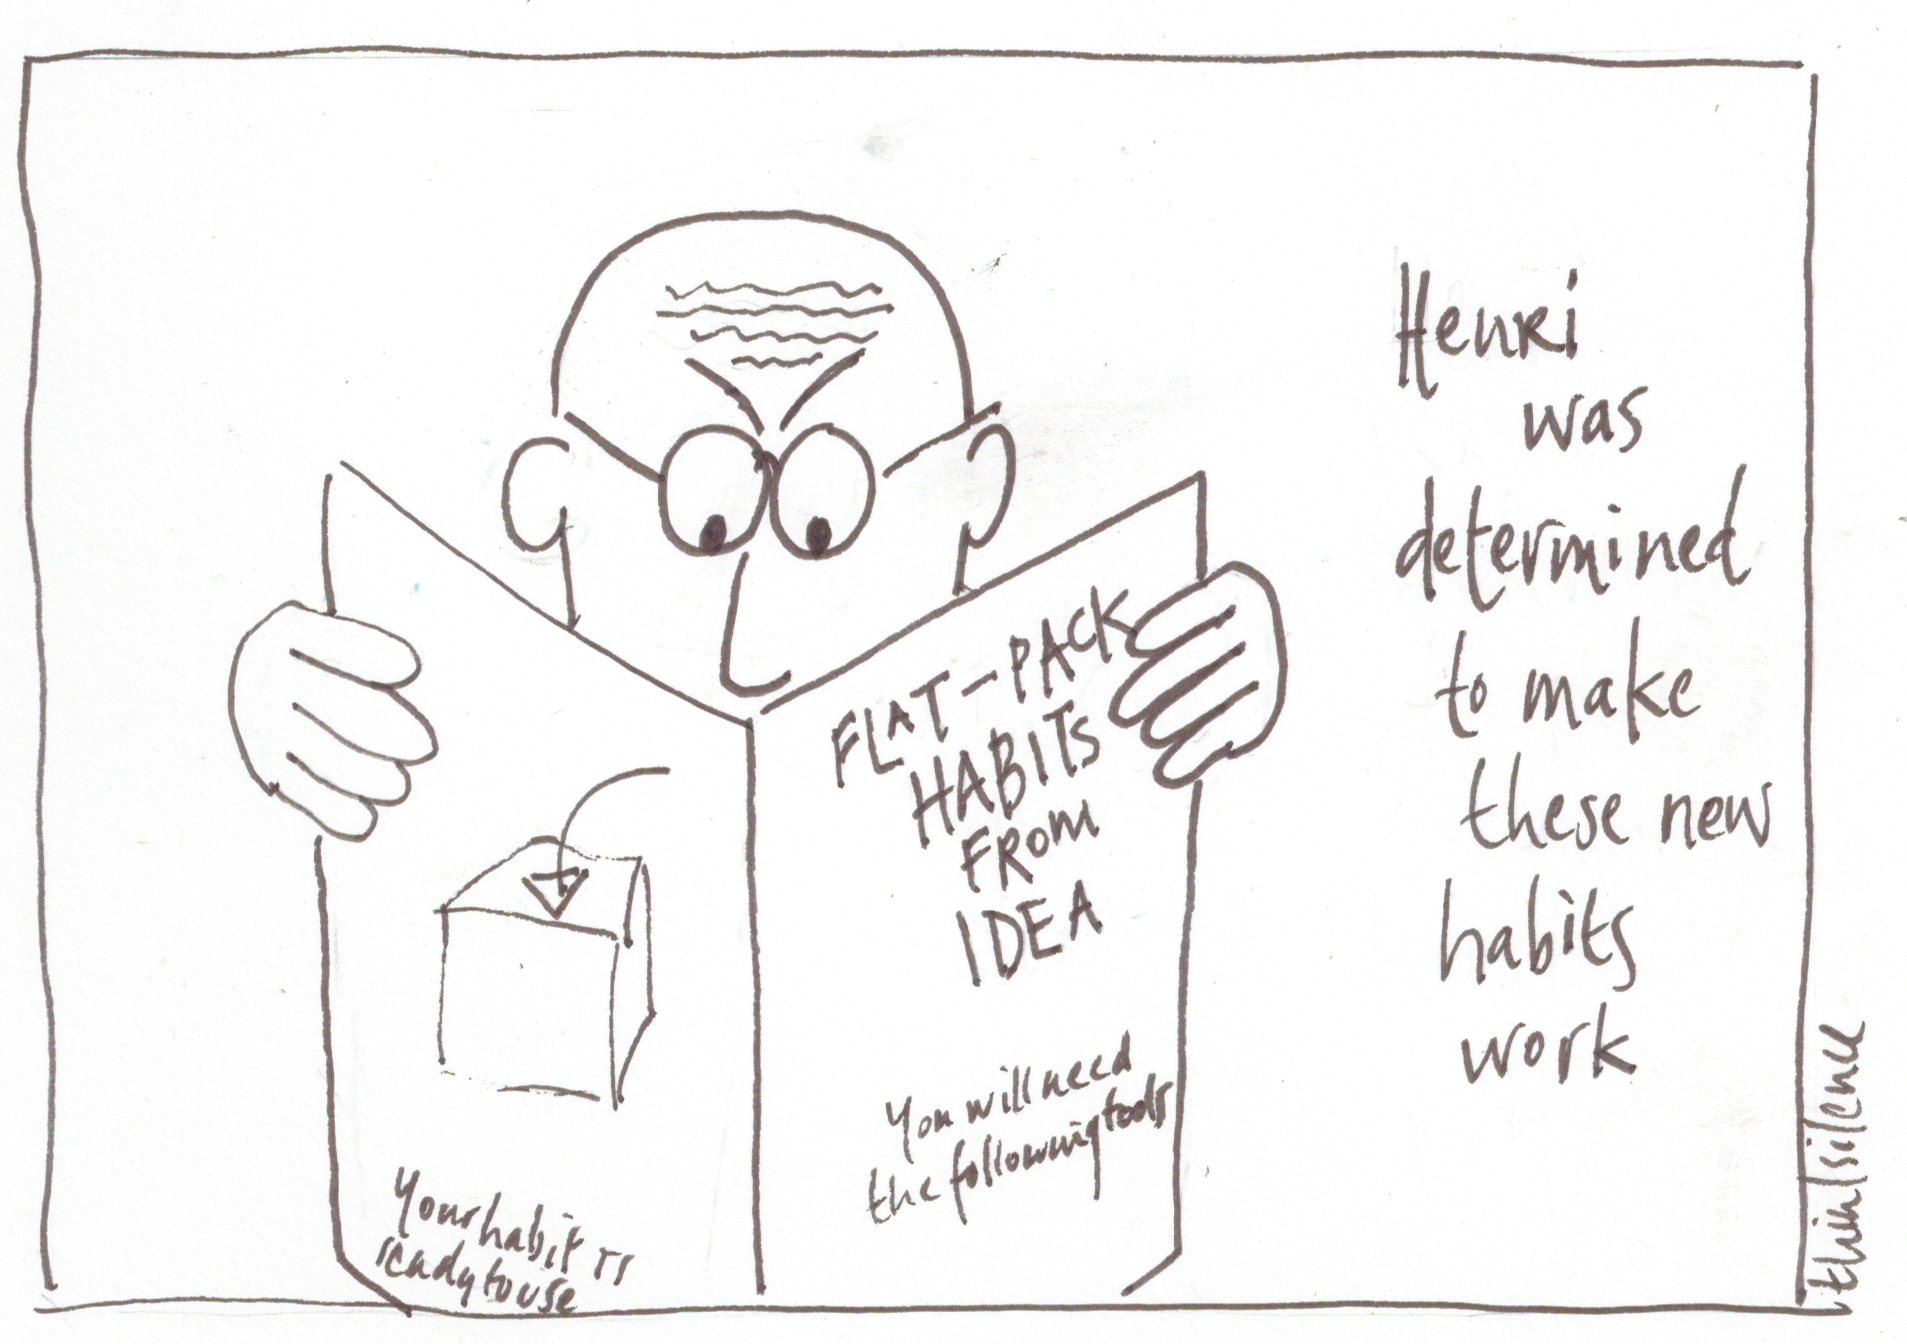 Henri
was
determined
to make
these new
habits
work
FLAT-PACK
HABITS
FROM
IDEA
You will need
the following tools
Your habit is
ready to use
thinksilence